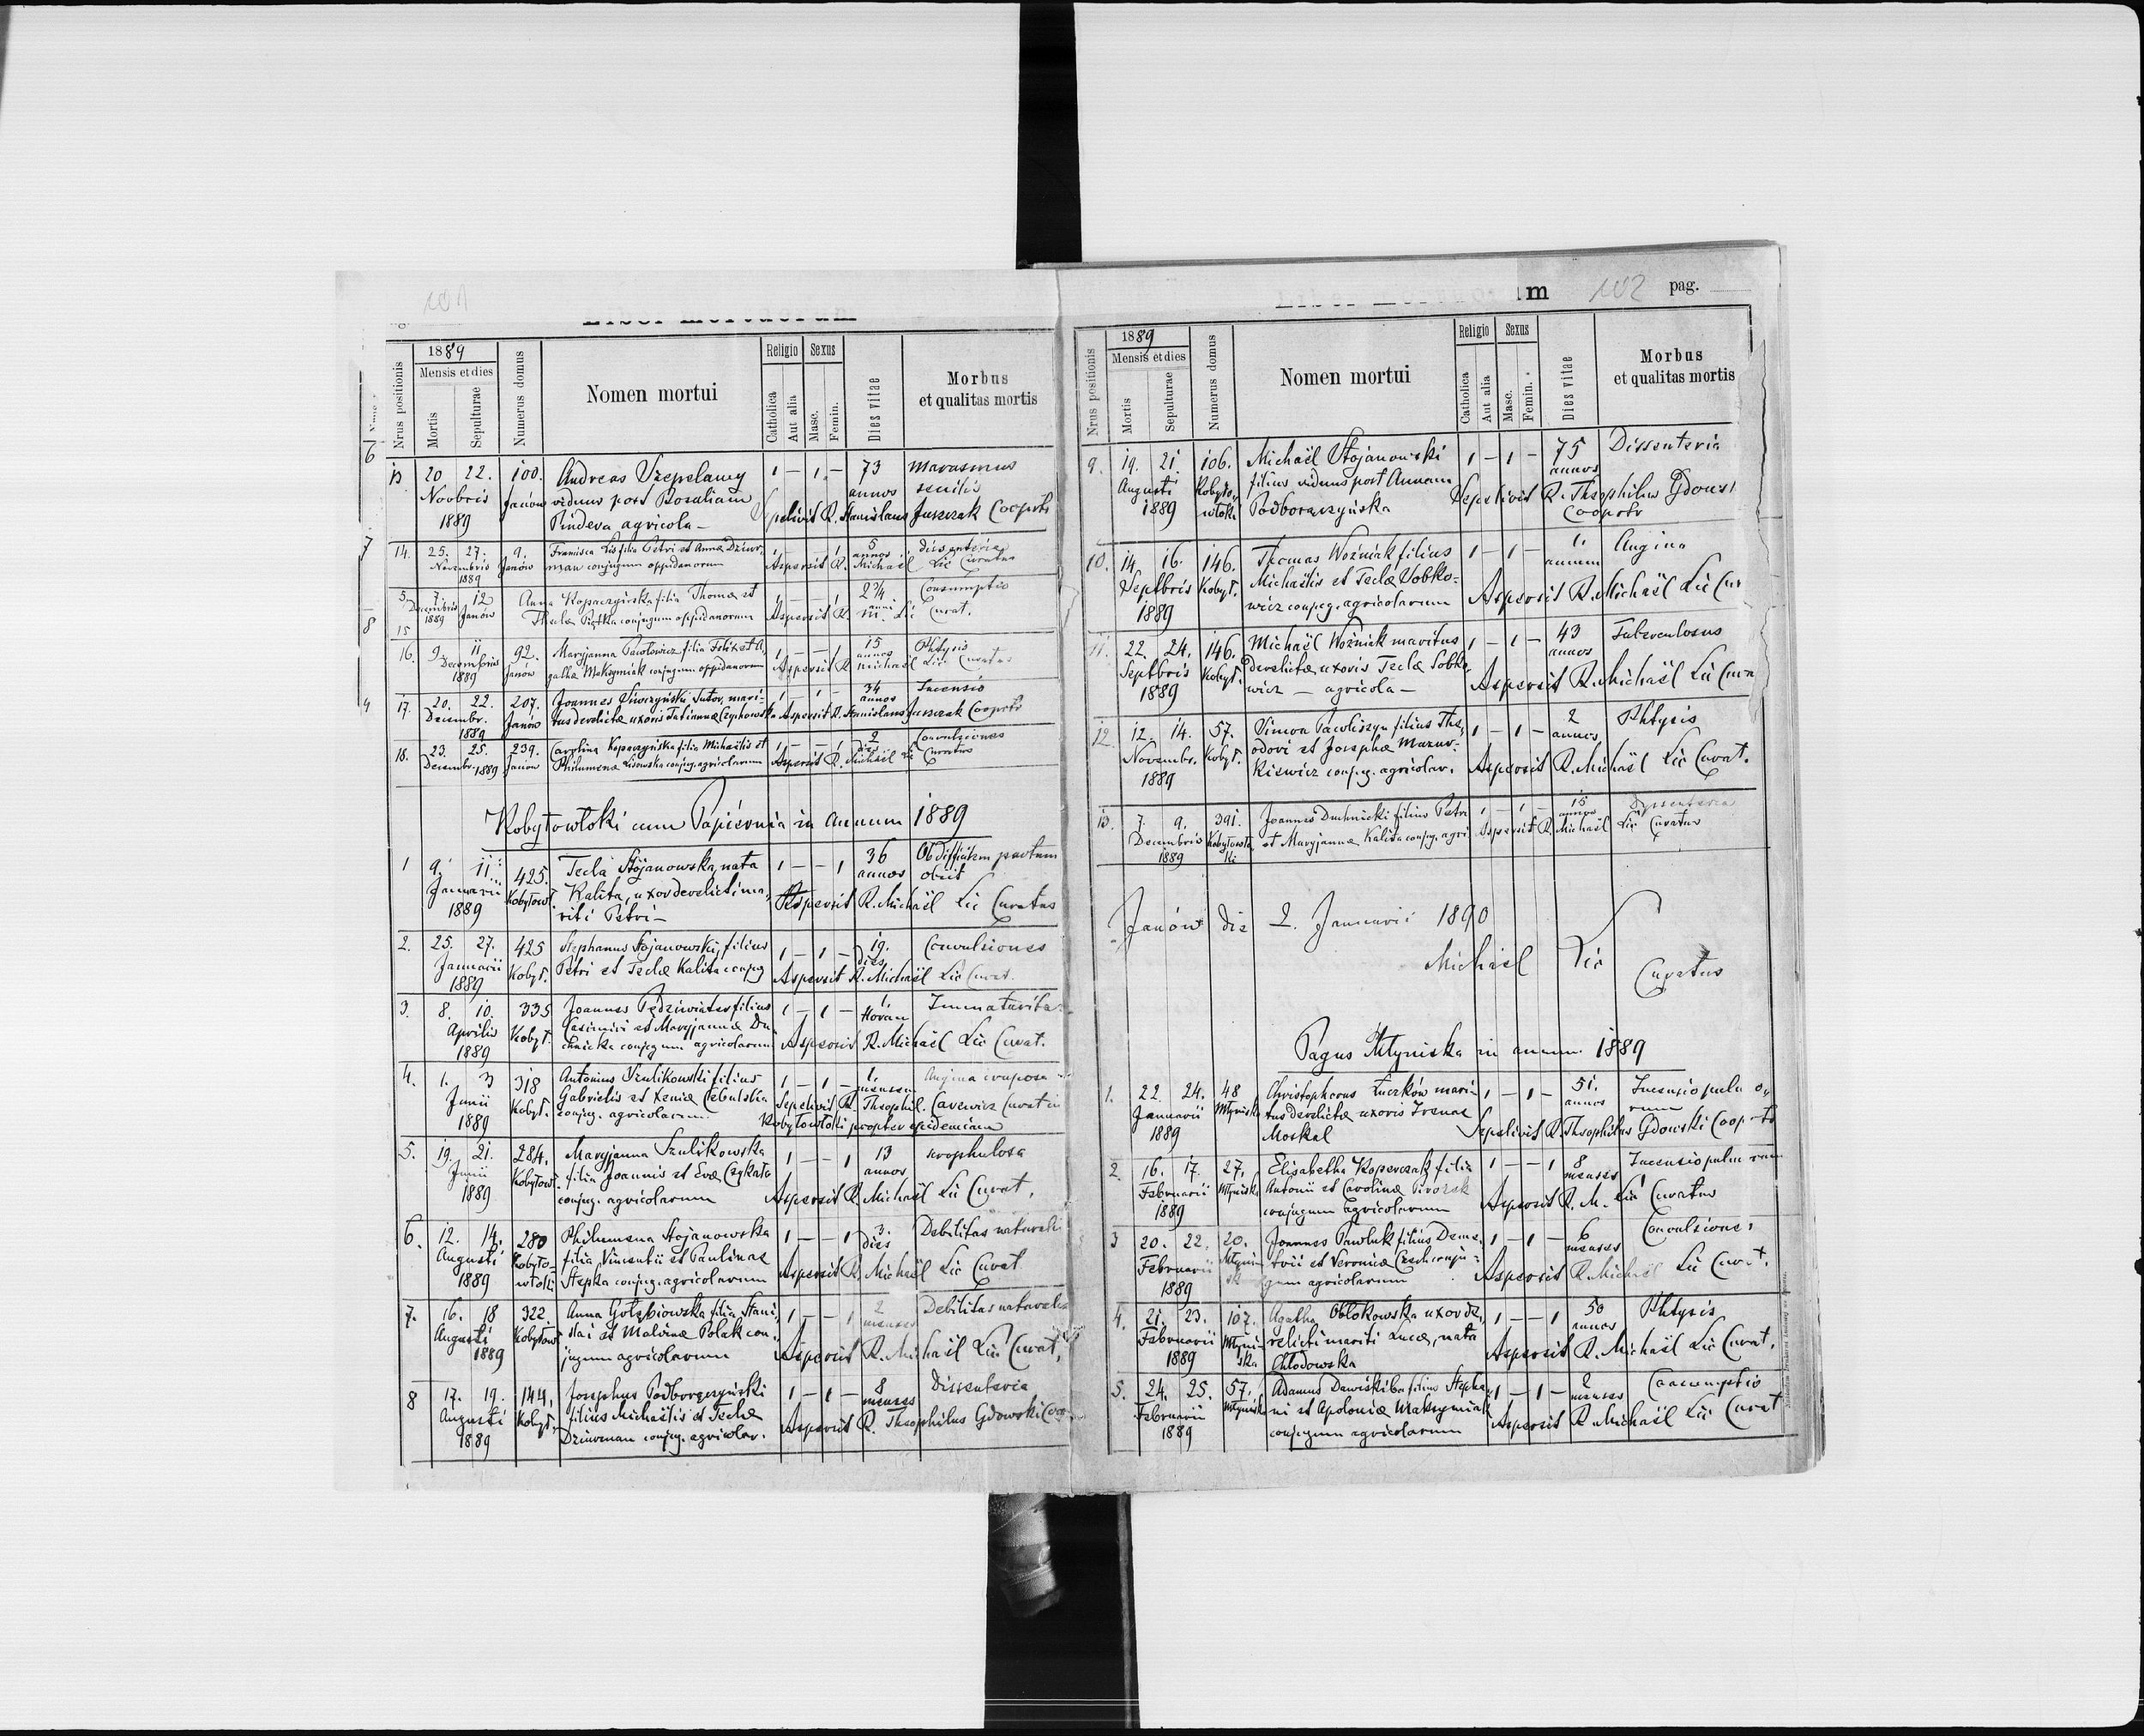 101
Liber mortuorum
1889
Mensis et dies
Nrus positionis
Mortis
Sepulturae
Numerus domus
Nomen mortui
Religio
Catholica
Aut alia
Sexus
Masc.
Femin.
Dies vitae
Morbus
et qualitas mortis
13 20 22. 100. Andreas Szepelawy 1 — 1 — 73 Marasmus
Novbris Janów viduus post Rosaliam annos senilis
1889 Pindera agricola — Sepelivit R. Stanislaus Juszczak Cooprtr
14. 25. 27. 9. Francisca Lis filia Petri et Annæ Dziur- 1 — — 1 5 Dissenteria
Novembris Janów man conjugum oppidanorum Aspersit R. Michaël Lic Curatus annos
1889
5 7. 12 Anna Kopaczyńska filia Thomæ et 1 — — 1 2¾ Consumptio
Decembris 1889 Janów Theclæ Piętka conjugum oppidanorum Aspersit R. M. Lic Curat. anni
15
16. 9. 11 92. Maryjanna Pawłowicz filia Felix et A- 1 — — 1 15 Phtysis
Decembris Janów gathæ Maksymiak conjugum oppidanorum Aspersit R. Michaël Lic Curatus annos
1889
17. 20. 22. 207. Joannes Siwczyński Sutor, mari- 1 — 1 — 34 Incensio
Decembr. Janów tus derelictæ uxoris Tatiannæ Czychowska Aspersit R. Stanislaus Juszczak Cooprtr annos
1889
18. 23. 25. 239. Carolina Kopaczyńska filia Michaëlis et 1 — — 1 2 Convulsiones
Decembr. 1889 Janów Philumenæ Lisowska conjug. agricolarum Aspersit R. Michaël Lic Curatus dies
Kobyłowłoki cum Papiernia in annum 1889
1 9. 11. 425. Tecla Stojanowska, nata 1 — — 1 36 Ob difficilem partum
Januarii Kobyłowł. Kalita, uxor derelicti ma- annos obiit
1889 riti Petri — Aspersit R. Michaël Lic Curatus
2. 25. 27. 425 Stephanus Stojanowski, filius 1 — 1 — 19. Convulsiones
Januarii Kobył. Petri et Teclæ Kalita conjug dies
1889 Aspersit R. Michaël Lic Curat.
3. 8. 10. 335 Joannes Pędziwiater filius 1 — 1 — 1. Immaturitas
Aprilis Kobył. Casimiri et Maryjannæ Du- Horam
1889 chnicka conjugum agricolarum Aspersit R. Michaël Lic Curat.
4. 1. 3 318 Antonius Szulikowski filius 1 — 1 — 1. Angina
Junii Kobył. Gabrielis et Xeniæ Cebulska mensem
1889 conjug. agricolarum. Sepelivit R. Theophil. Curat in
Kobyłowłoki propter epidemiam
5. 19. 21. 284. Maryjanna Szulikowska 1 — — 1 13 scrophulosa
Junii Kobyłowł. filia Joannis et Evæ Czykała annos
1889 conjug. agricolarum Aspersit R. Michaël Lic Curat.
6. 12. 14. 280 Philumena Stojanowska 1 — — 1 3. Debilitas naturalis
Augusti Kobyło- filia Vincentii et Paulinae dies
1889 włoki Stepka conjug. agricolarum Aspersit R. Michaël Lic Curat.
7. 16. 18 322. Anna Gołębiowska filia Stani- 1 — — 1 2 Debilitas naturalis
Augusti Kobyłow slai et Malvinæ Polak con- menses
1889 jugum agricolarum Aspersit R. Michaël Lic Curat.
8 17. 19. 144. Josephus Podboraczyński 1 — 1 — 8 Dissenteria
Augusti Kobył. filius Michaëlis et Teclæ menses
1889 Dziurman conjug. agricolar. Aspersit R. Theophilus Gdowski Coop
102 pag.
1889
Mensis et dies
Nrus positionis
Mortis
Sepulturae
Numerus domus
Nomen mortui
Religio
Catholica
Aut alia
Sexus
Masc.
Femin.
Dies vitae
Morbus
et qualitas mortis
9. 19. 21. 106. Michaël Stojanowski 1 — 1 — 75 Dissenteria
Augusti Kobyło- filius viduus post Annam annos
1889 włoki Podboraczyńska Sepelivit R. Theophilus Gdowski Cooprtr
10. 14. 16. 146. Thomas Woźniak filius 1 — 1 — 1. Angina
Septbris Kobył. Michaëlis et Teclæ Sobko- annum
1889 wicz conjug. agricolarum Aspersit R. Michaël Lic Cur
11. 22. 24. 146. Michaël Woźniak maritus 1 — 1 — 43 Tuberculosus
Septbris Kobył. derelictæ uxoris Teclæ Sobko- annos
1889 wicz — agricola — Aspersit R. Michaël Lic Cura
12. 12. 14. 57. Simon Pawliszyn filius The- 1 — 1 — 2 Phtysis
Novembr. Kobył. odori et Josephæ Mazur- annos
1889 kiewicz conjug. agricolar. Aspersit R. Michaël Lic Curat.
13. 7. 9. 391. Joannes Duchnicki filius Petri 1 — 1 — 15 Dyssenteria
Decembris Kobyłowło et Maryjannæ Kalita conjug. agri Aspersit R. Michaël Lic Curatus annos
1889 ki
Janów die 2. Januarii 1890
Michaël Lic
Curatus
Pagus Młyniska in annum 1889
1. 22. 24. 48 Christophorus Łuczków mari- 1 — 1 — 51. Incensio pulmo
Januarii Młyniska tus derelictæ uxoris Irenae annos num
1889 Moskal Sepelivit R. Theophilus Gdowski Cooprtr
2. 16. 17. 27. Elisabetha Koperczak filia 1 — — 1 8 Incensio pulmonum
Februarii Młyniska Antonii et Carolinæ Pivożak menses
1889 conjugum agricolarum Aspersit R. M. Lic Curatus
3 20. 22. 20. Joannes Pawluk filius Deme- 1 — 1 — 6 Convulsiones
Februarii Młynisk trii et Veronicæ Czech conju- menses
1889 gum agricolarum Aspersit R. Michaël Lic Curat.
4. 21. 23. 107. Agatha Obłokowska uxor de- 1 — — 1 50 Phtysis
Februarii Młyni- relicti mariti Lucæ, nata annos
1889 ska Chłodowska Aspersit R. Michaël Lic Curat.
5. 24. 25. 57. Adamus Dawiskiba filius Stepha- 1 — 1 — 2 Consumptio
Februarii Młyniska ni et Apoloniæ Maksymiak menses
1889 conjugum agricolarum Aspersit R. Michaël Lic Curat